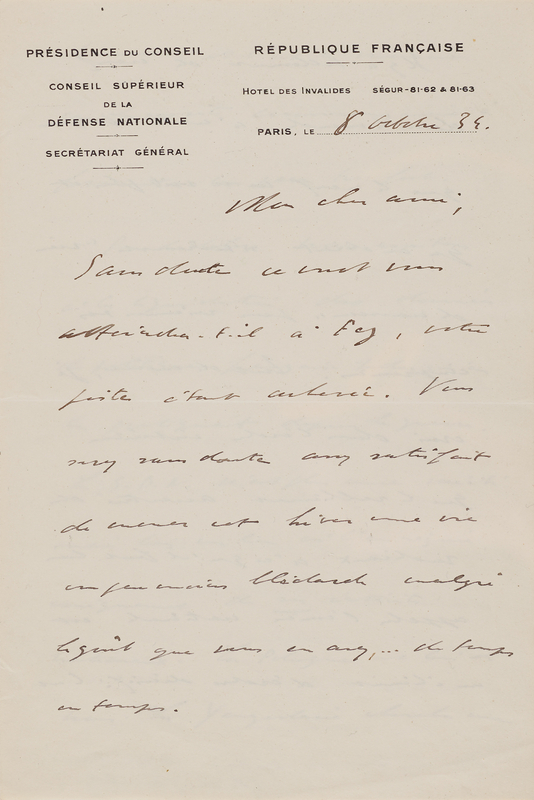 PRÉSIDENCE DU CONSEIL
CONSEIL SUPÉRIEUR
DE LA
DÉFENSE NATIONALE
SECRÉTARIAT GÉNÉRAL
RÉPUBLIQUE FRANÇAISE
HOTEL DES INVALIDES SÉGUR-81-62 & 81-63
PARIS, LE 8 octobre 34.
Mon cher ami,
Sans doute ce mot vous
atteindra-t-il à Fez, votre
étant achevée. Vous
serez sans doute assez satisfait
de mener cet hiver une vie
un peu moins blédarde malgré
le goût que vous en avez,... de temps
en temps.